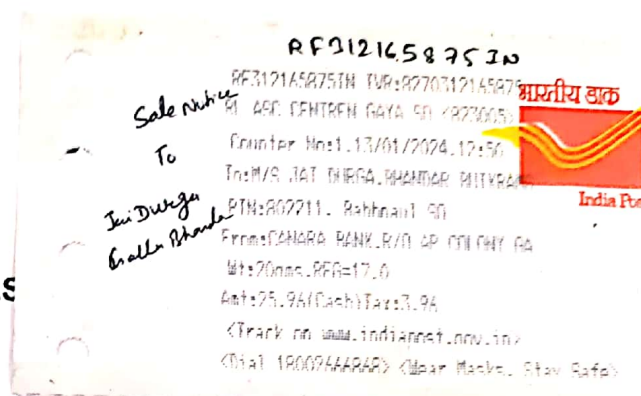 RF312165875IN
RF312165875IN IVR:8270312165875
RL ASC CENTREN GAYA SO <823005>
Counter No:1,13/01/2024,12:50
To:M/S JAI DURGA,BHANDAR
PIN:802211, Bahhnaul SO
From:CANARA BANK,R/O AP COLONY GA
Wt:20gms,REG=17.0
Amt:25.96(Cash)Tax:3.96
<Track on www.indiapost.gov.in>
<Dial 18002666868> <Wear Masks, Stay Safe>
Sale Notice
To
Jai Durga
Bhandar
भारतीय डाक
India Pos